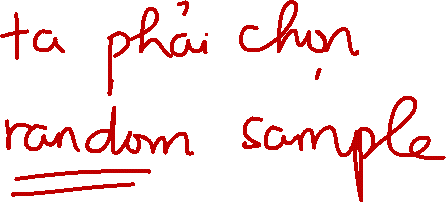 ta phải chọn
random sample